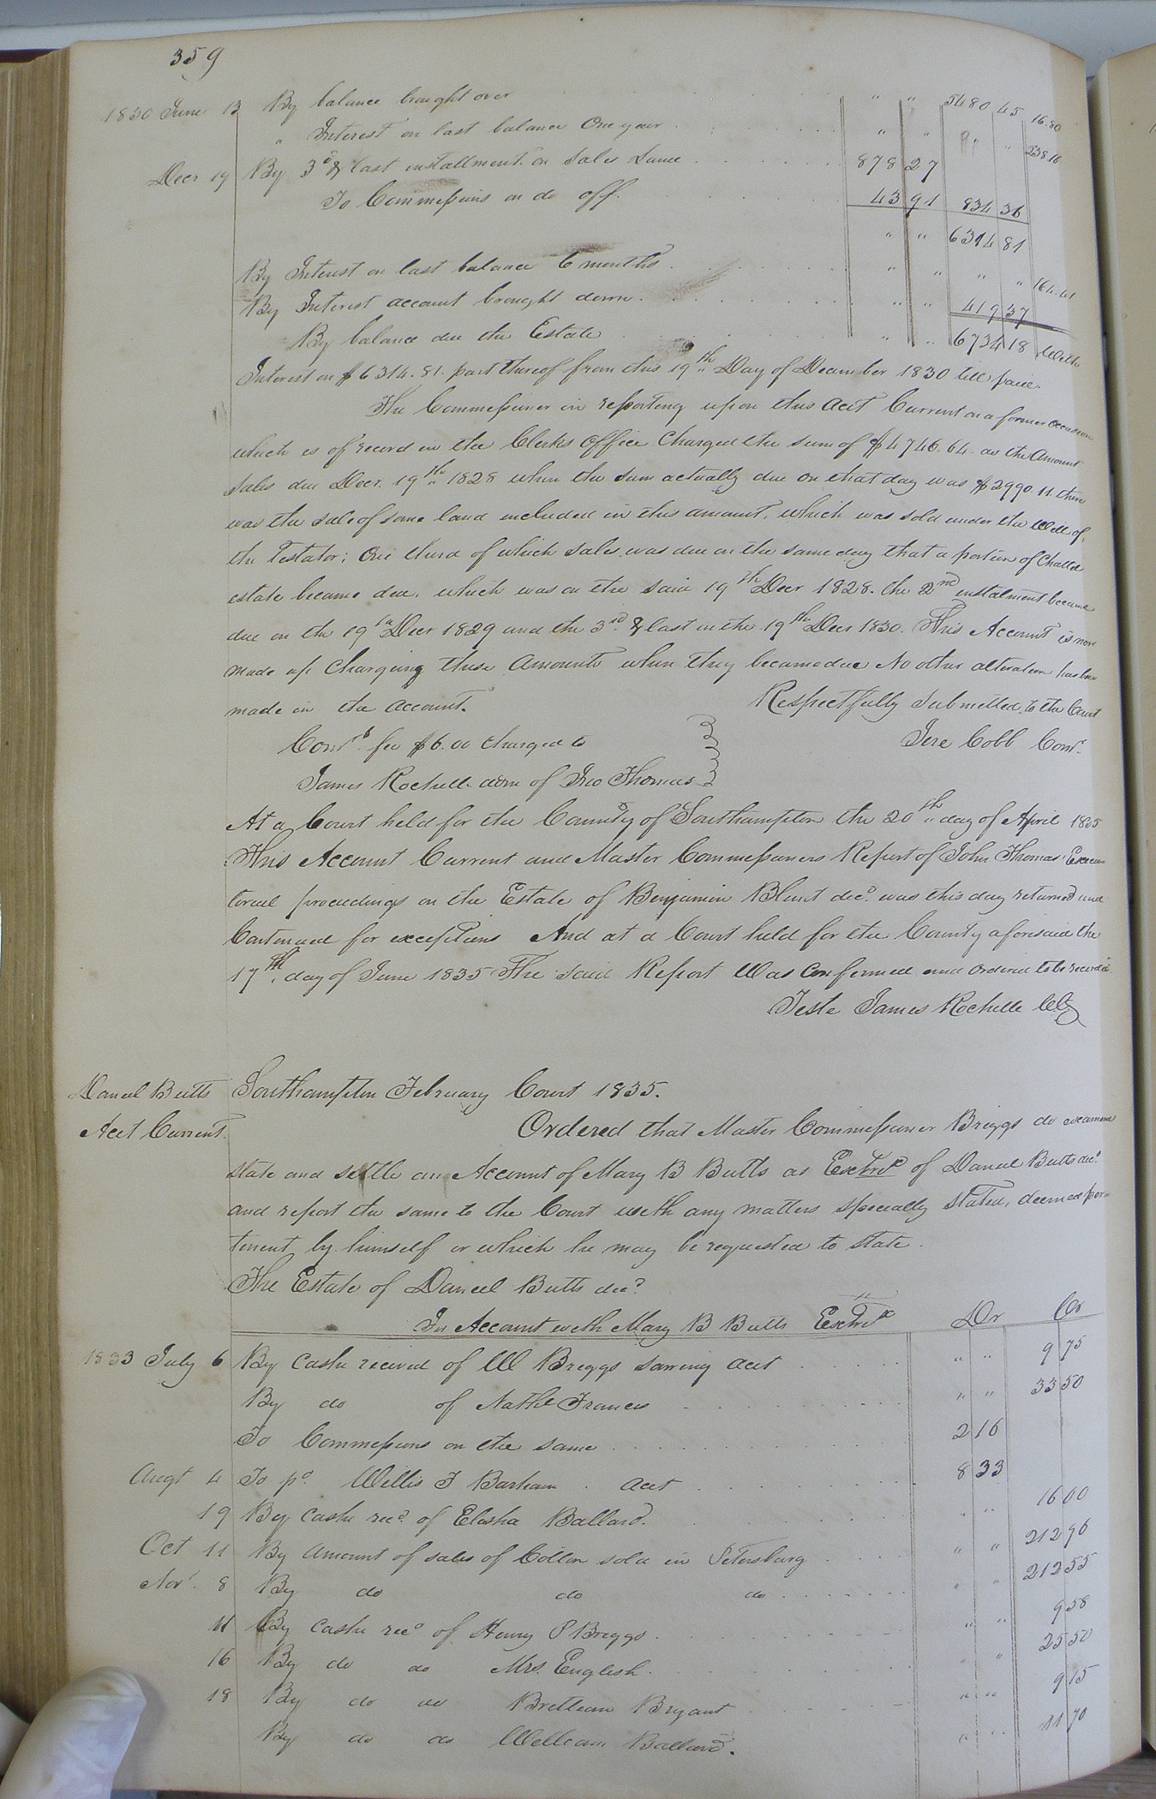 359
1830 June 13 By balance brought over " " 5480 45 16.80
" Interest on last balance One year " " " " 238 16
Decr 19 By 3d & last installment on Sales Same 878 27
To Commissions on do off. 43 91 834 36
" " 6314 81
By Interest on last balance 6 months " " " " 164.41
By Interest account brought down. " " 419 37
By balance due the Estate " " 6734 18 With
Interest on $6314.81. part thereof from this 19th Day of December 1830 till paid.
The Commissioner in reporting upon this Acct Current on a former occasion
which is of record in the Clerks Office Charged the sum of $4746.64 as the Amount
Sales due Decr. 19th 1828 when the sum actually due on that day was $2990.11. there
was the sale of some land included in this amount, which was sold under the Will of
the Testator; One third of which sales was due on the same day that a portion of Chattel
estate became due, which was on the said 19th Decr 1828. the 2nd instalment became
due on the 19th Decr 1829 and the 3rd & last on the 19th Decr 1830. This Account is now
made up Charging these Amounts when they became due No other alteration has been
made in the Account. Respectfully Submitted to the Court
Comrs fee $6.00 charged to Jere Cobb Comr.
James Rochelle adm of Jno Thomas
At a Court held for the County of Southampton the 20th day of April 1835
This Account Current and Master Commissioners Report of John Thomas' Execu
torial proceedings on the Estate of Benjamin Blunt decd. was this day returned and
Continued for exceptions And at a Court held for the County aforesaid the
17th day of June 1835 The said Report Was Confirmed and Ordered to be recorded
Teste James Rochelle Clk
Daniel Butts Southampton February Court 1835.
Acct Current. Ordered that Master Commissioner Briggs do examine
state and settle an Account of Mary B Butts as Exectrx of Daniel Butts decd
and report the same to the Court with any matters specially stated, deemed per=
tinent by himself or which he may be requested to state.
The Estate of Daniel Butts decd.
In Account with Mary B Butts Exectrx Dr Cr
1833 July 6 By Cash received of W Briggs acct " " 9 75
By do of Nathl Francis " " 33 50
To Commissions on the same 2 16
Augt 4 To pd. Willis J Barham acct 8 33
19 By cash recd. of Elisha Ballard. " " 16 00
Oct 11 By Amount of sales of Cotton sold in Petersburg " " 212 96
Novr. 8 By do do do " " 212 55
11 By cash recd of Henry P Briggs. " " 9 58
16 By do do Mrs English. " " 25 50
18 By do do Bryant " " 9 15
By do do William Ballard. " " 11 70